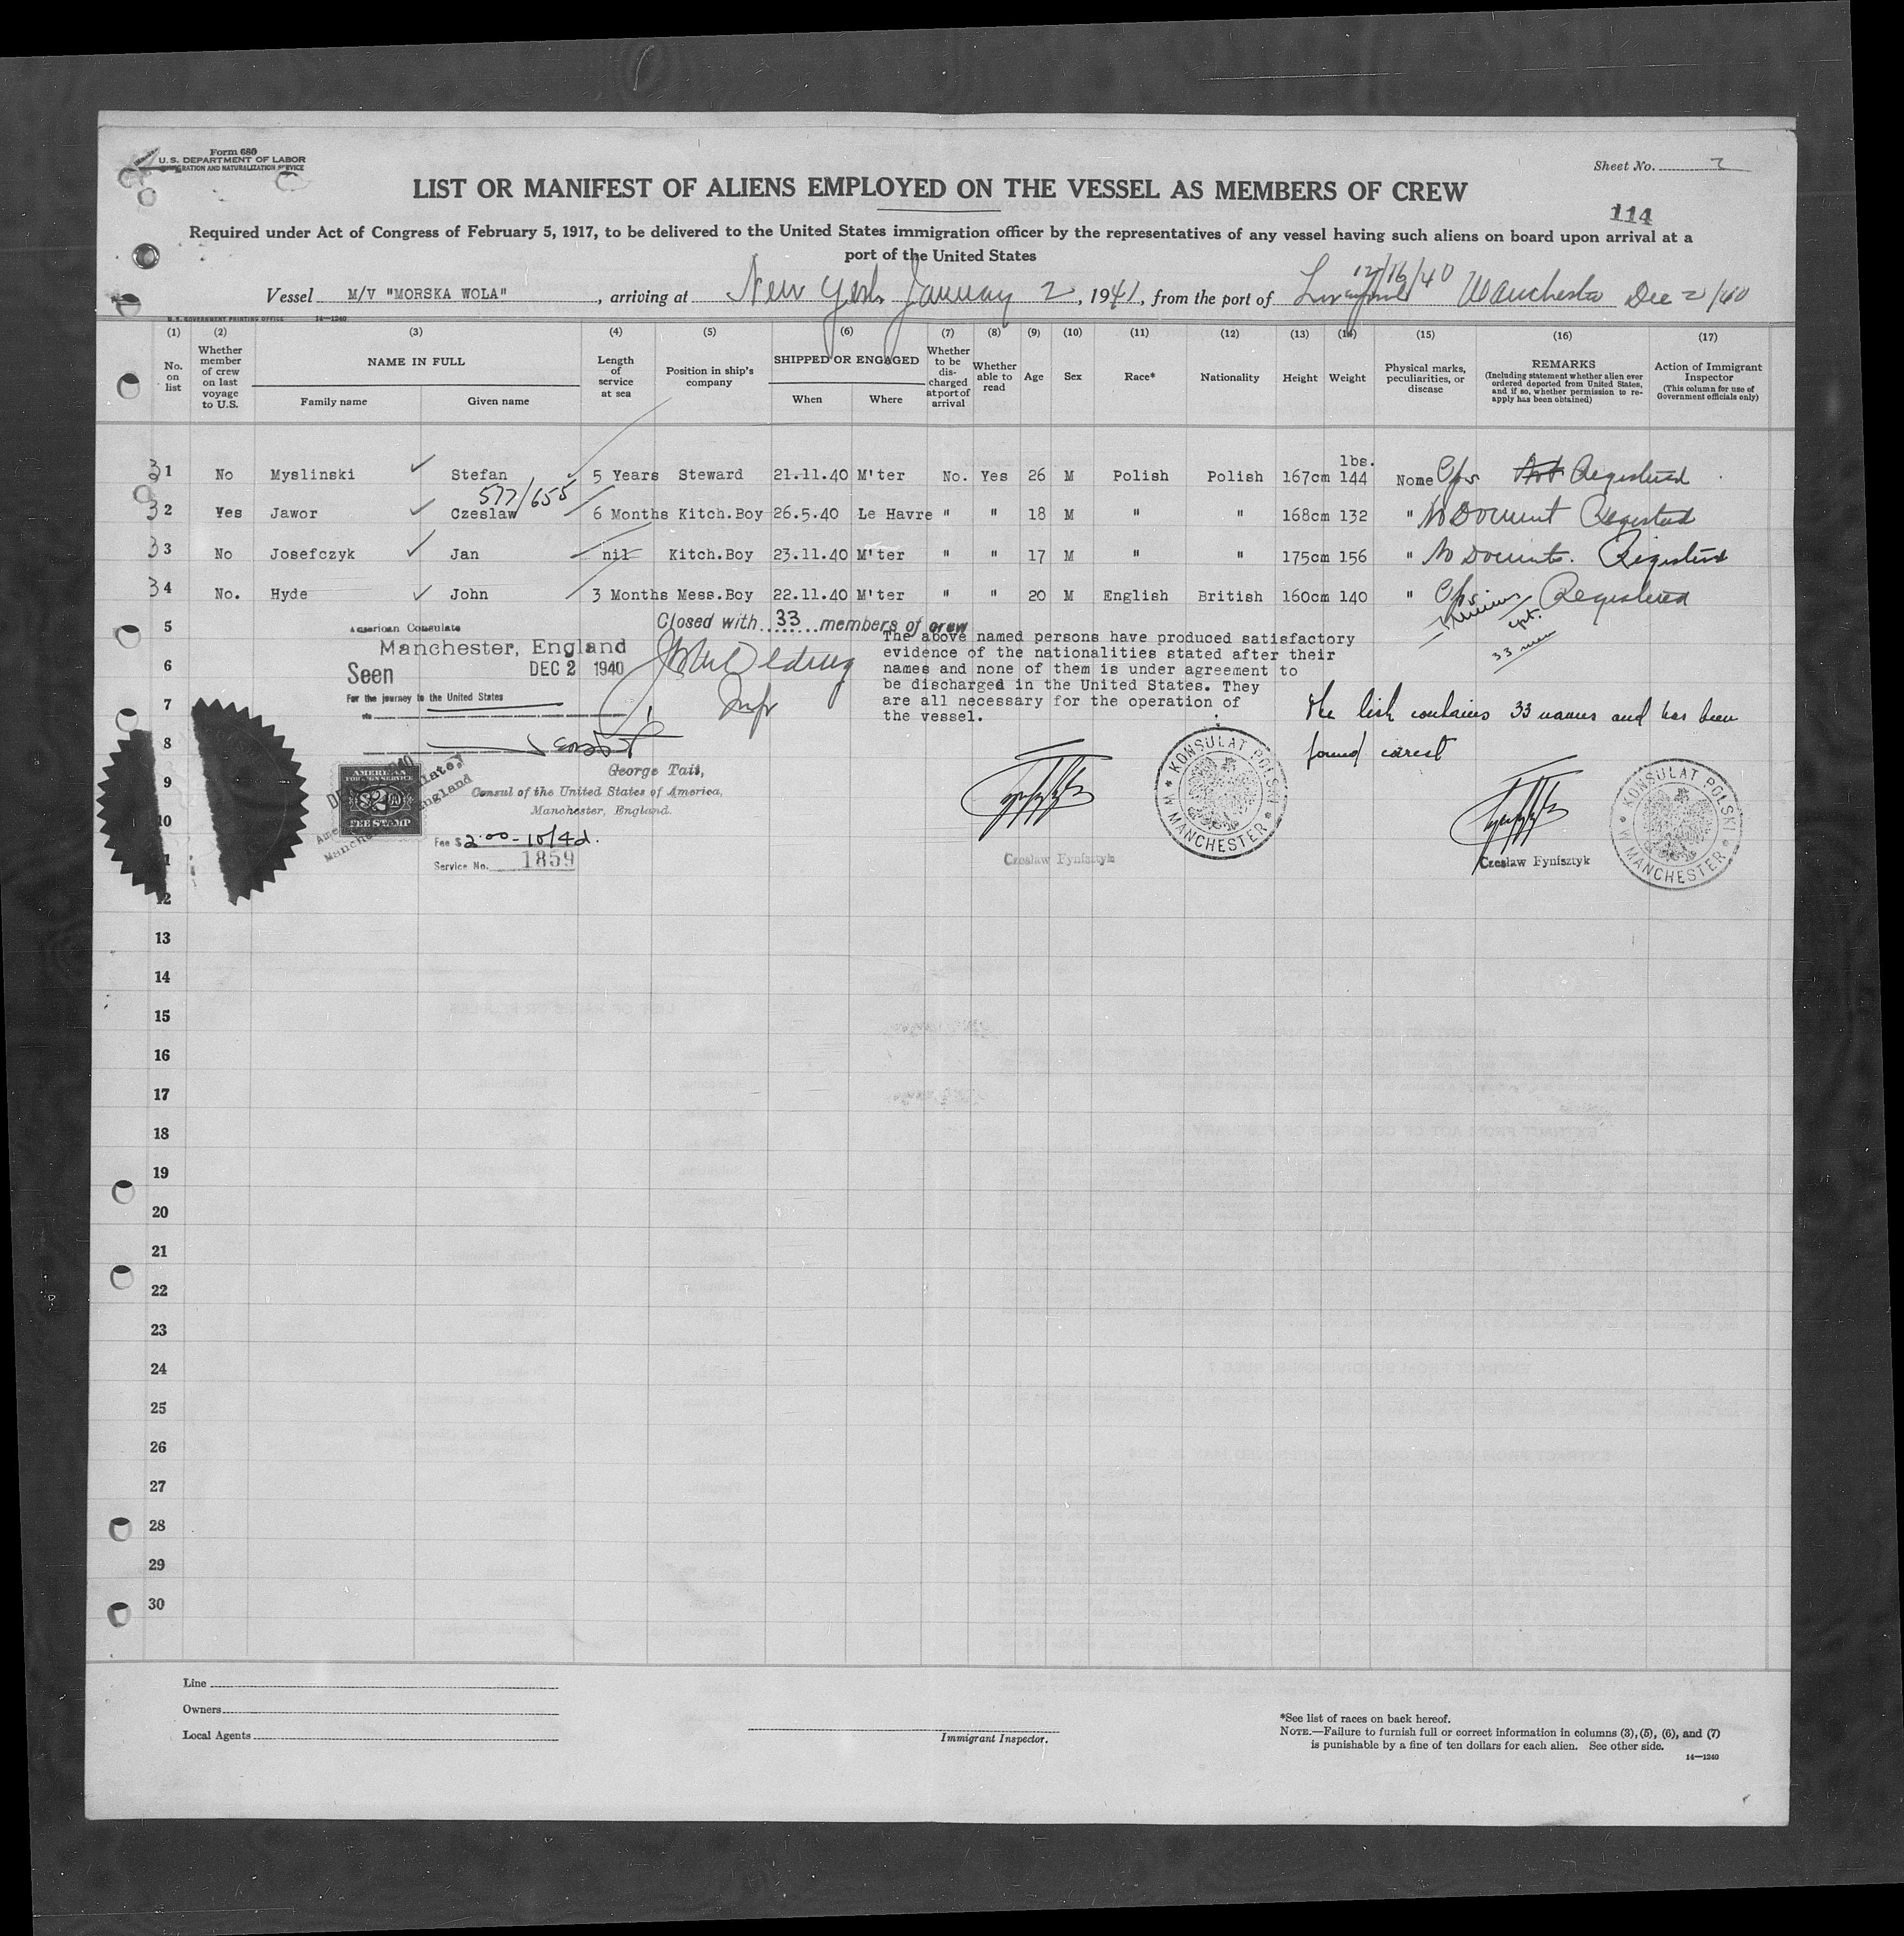 Form 680
U.S. DEPARTMENT OF LABOR
IMMIGRATION AND NATURALIZATION SERVICE
Sheet No. 2
LIST OR MANIFEST OF ALIENS EMPLOYED ON THE VESSEL AS MEMBERS OF CREW
114
Required under Act of Congress of February 5, 1917, to be delivered to the United States immigration officer by the representatives of any vessel having such aliens on board upon arrival at a
port of the United States
12/16/40
Vessel M/V "MORSKA WOLA", arriving at New York January 2, 1941, from the port of Liverpool Manchester Dec 2/40
U.S. GOVERNMENT PRINTING OFFICE 14—1240
(1) (2) (3) (4) (5) (6) (7) (8) (9) (10) (11) (12) (13) (14) (15) (16) (17)
No. on list
Whether member of crew on last voyage to U.S.
NAME IN FULL
Family name Given name
Length of service at sea
Position in ship's company
SHIPPED OR ENGAGED
When Where
Whether to be discharged at port of arrival
Whether able to read
Age
Sex
Race*
Nationality
Height
Weight
Physical marks, peculiarities, or disease
REMARKS
(Including statement whether alien ever ordered deported from United States, and if so, whether permission to reapply has been obtained)
Action of Immigrant Inspector
(This column for use of Government officials only)
lbs.
31 No Myslinski Stefan 5 Years Steward 21.11.40 M'ter No. Yes 26 M Polish Polish 167cm 144 Nome Registered
577/655
32 Yes Jawor Czeslaw 6 Months Kitch.Boy 26.5.40 Le Havre " " 18 M " " 168cm 132 " No Document Registered
33 No Josefczyk Jan nil Kitch.Boy 23.11.40 M'ter " " 17 M " " 175cm 156 " No Documts. Registered
34 No. Hyde John 3 Months Mess.Boy 22.11.40 M'ter " " 20 M English British 160cm 140 " Registered
5
6
7
8
9
10
11
12
13
14
15
16
17
18
19
20
21
22
23
24
25
26
27
28
29
30
Closed with 33 members of crew
33 men
American Consulate
Manchester, England
Seen DEC 2 1940
For the journey to the United States
via
George Tait,
Consul of the United States of America,
Manchester, England.
AMERICAN
FOREIGN SERVICE
$2.00
FEE STAMP
Fee $ 2.00 - 10/4d.
Service No. 1859
The above named persons have produced satisfactory
evidence of the nationalities stated after their
names and none of them is under agreement to
be discharged in the United States. They
are all necessary for the operation of
the vessel.
KONSULAT POLSKI * W MANCHESTER *
Czesław Fynisztyk
the list contains 33 names and has been
found corect
KONSULAT POLSKI * W MANCHESTER *
Czesław Fynisztyk
Line
Owners
Local Agents
Immigrant Inspector.
*See list of races on back hereof.
NOTE.—Failure to furnish full or correct information in columns (3), (5), (6), and (7)
is punishable by a fine of ten dollars for each alien. See other side.
14—1240